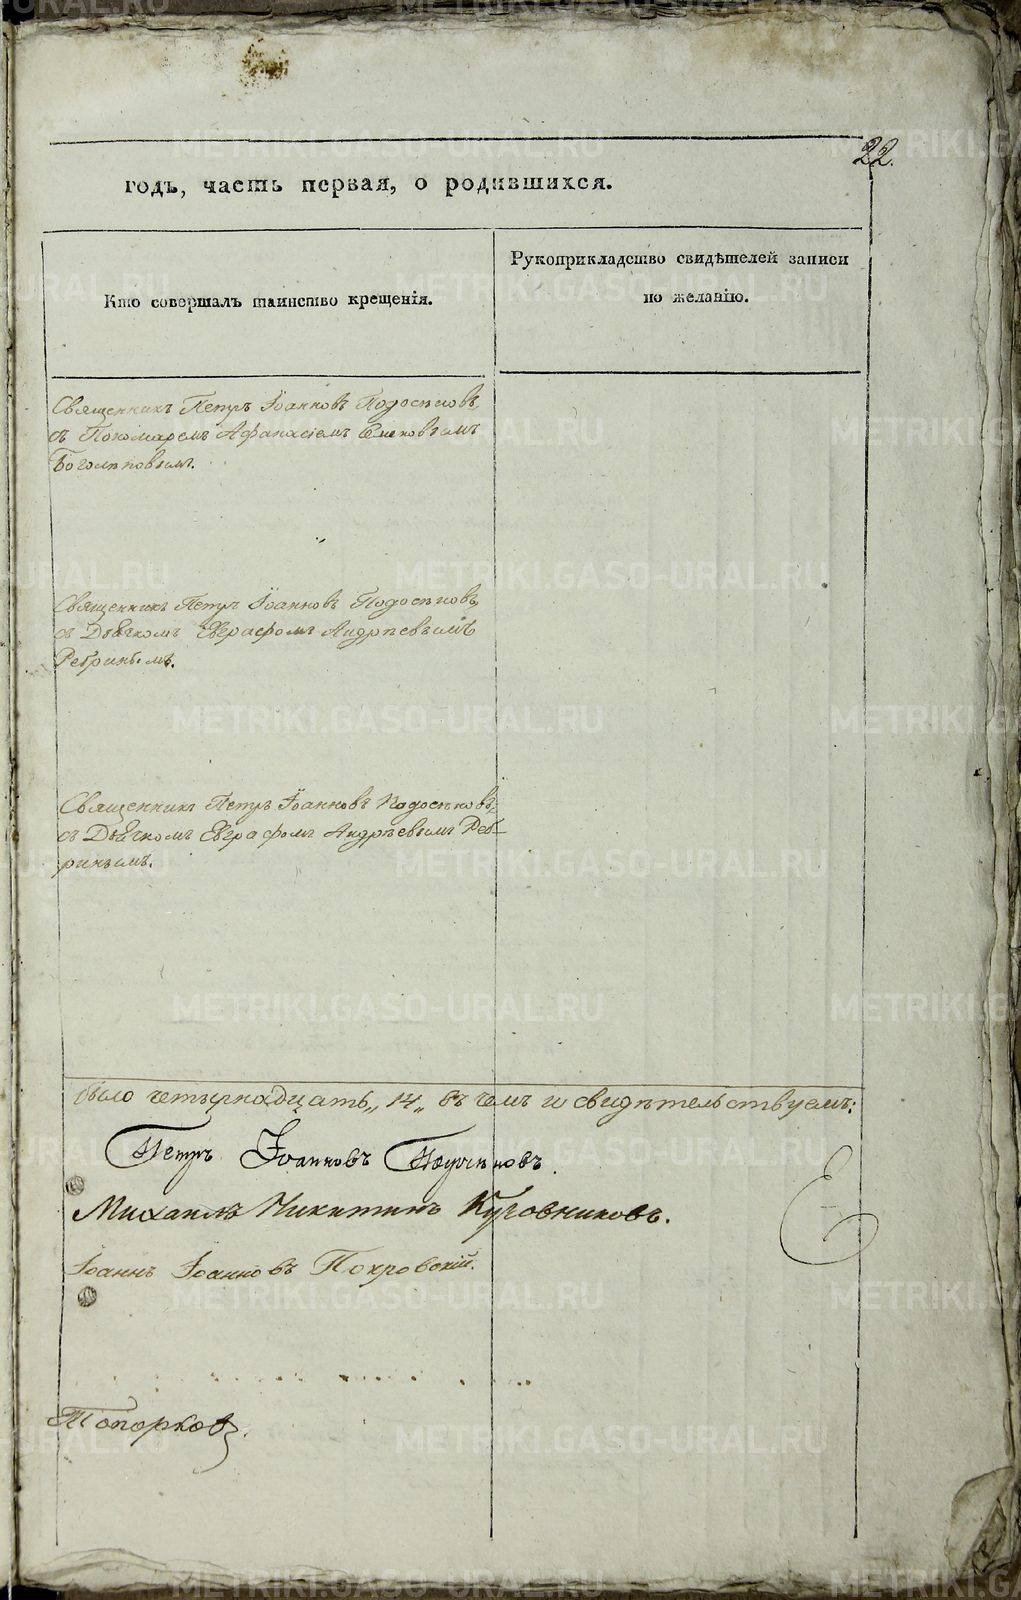 22.
годъ, часть первая, о родившихся.
Кто совершалъ таинство крещенія.
Рукоприкладство свидѣтелей записи
по желанію.
Священникъ Петръ Іоанновъ Подосеновъ
съ Пономаремъ Афанасіемъ
Боголеповымъ.
Священникъ Петръ Іоанновъ Подосеновъ
съ Дьячкомъ Евграфомъ Андрѣевымъ
Ребринымъ.
Священникъ Петръ Іоанновъ Подосеновъ
съ Дьячкомъ Евграфомъ Андрѣевымъ Реб-
ринымъ.
было четырнадцать „14„ въ чемъ и свидѣтельствуемъ:
Петръ Іоанновъ
Михаилъ Никитинъ
Іоаннъ Іоанновъ Покровскій.
Топорковъ.
METRIKI.GASO-URAL.RU